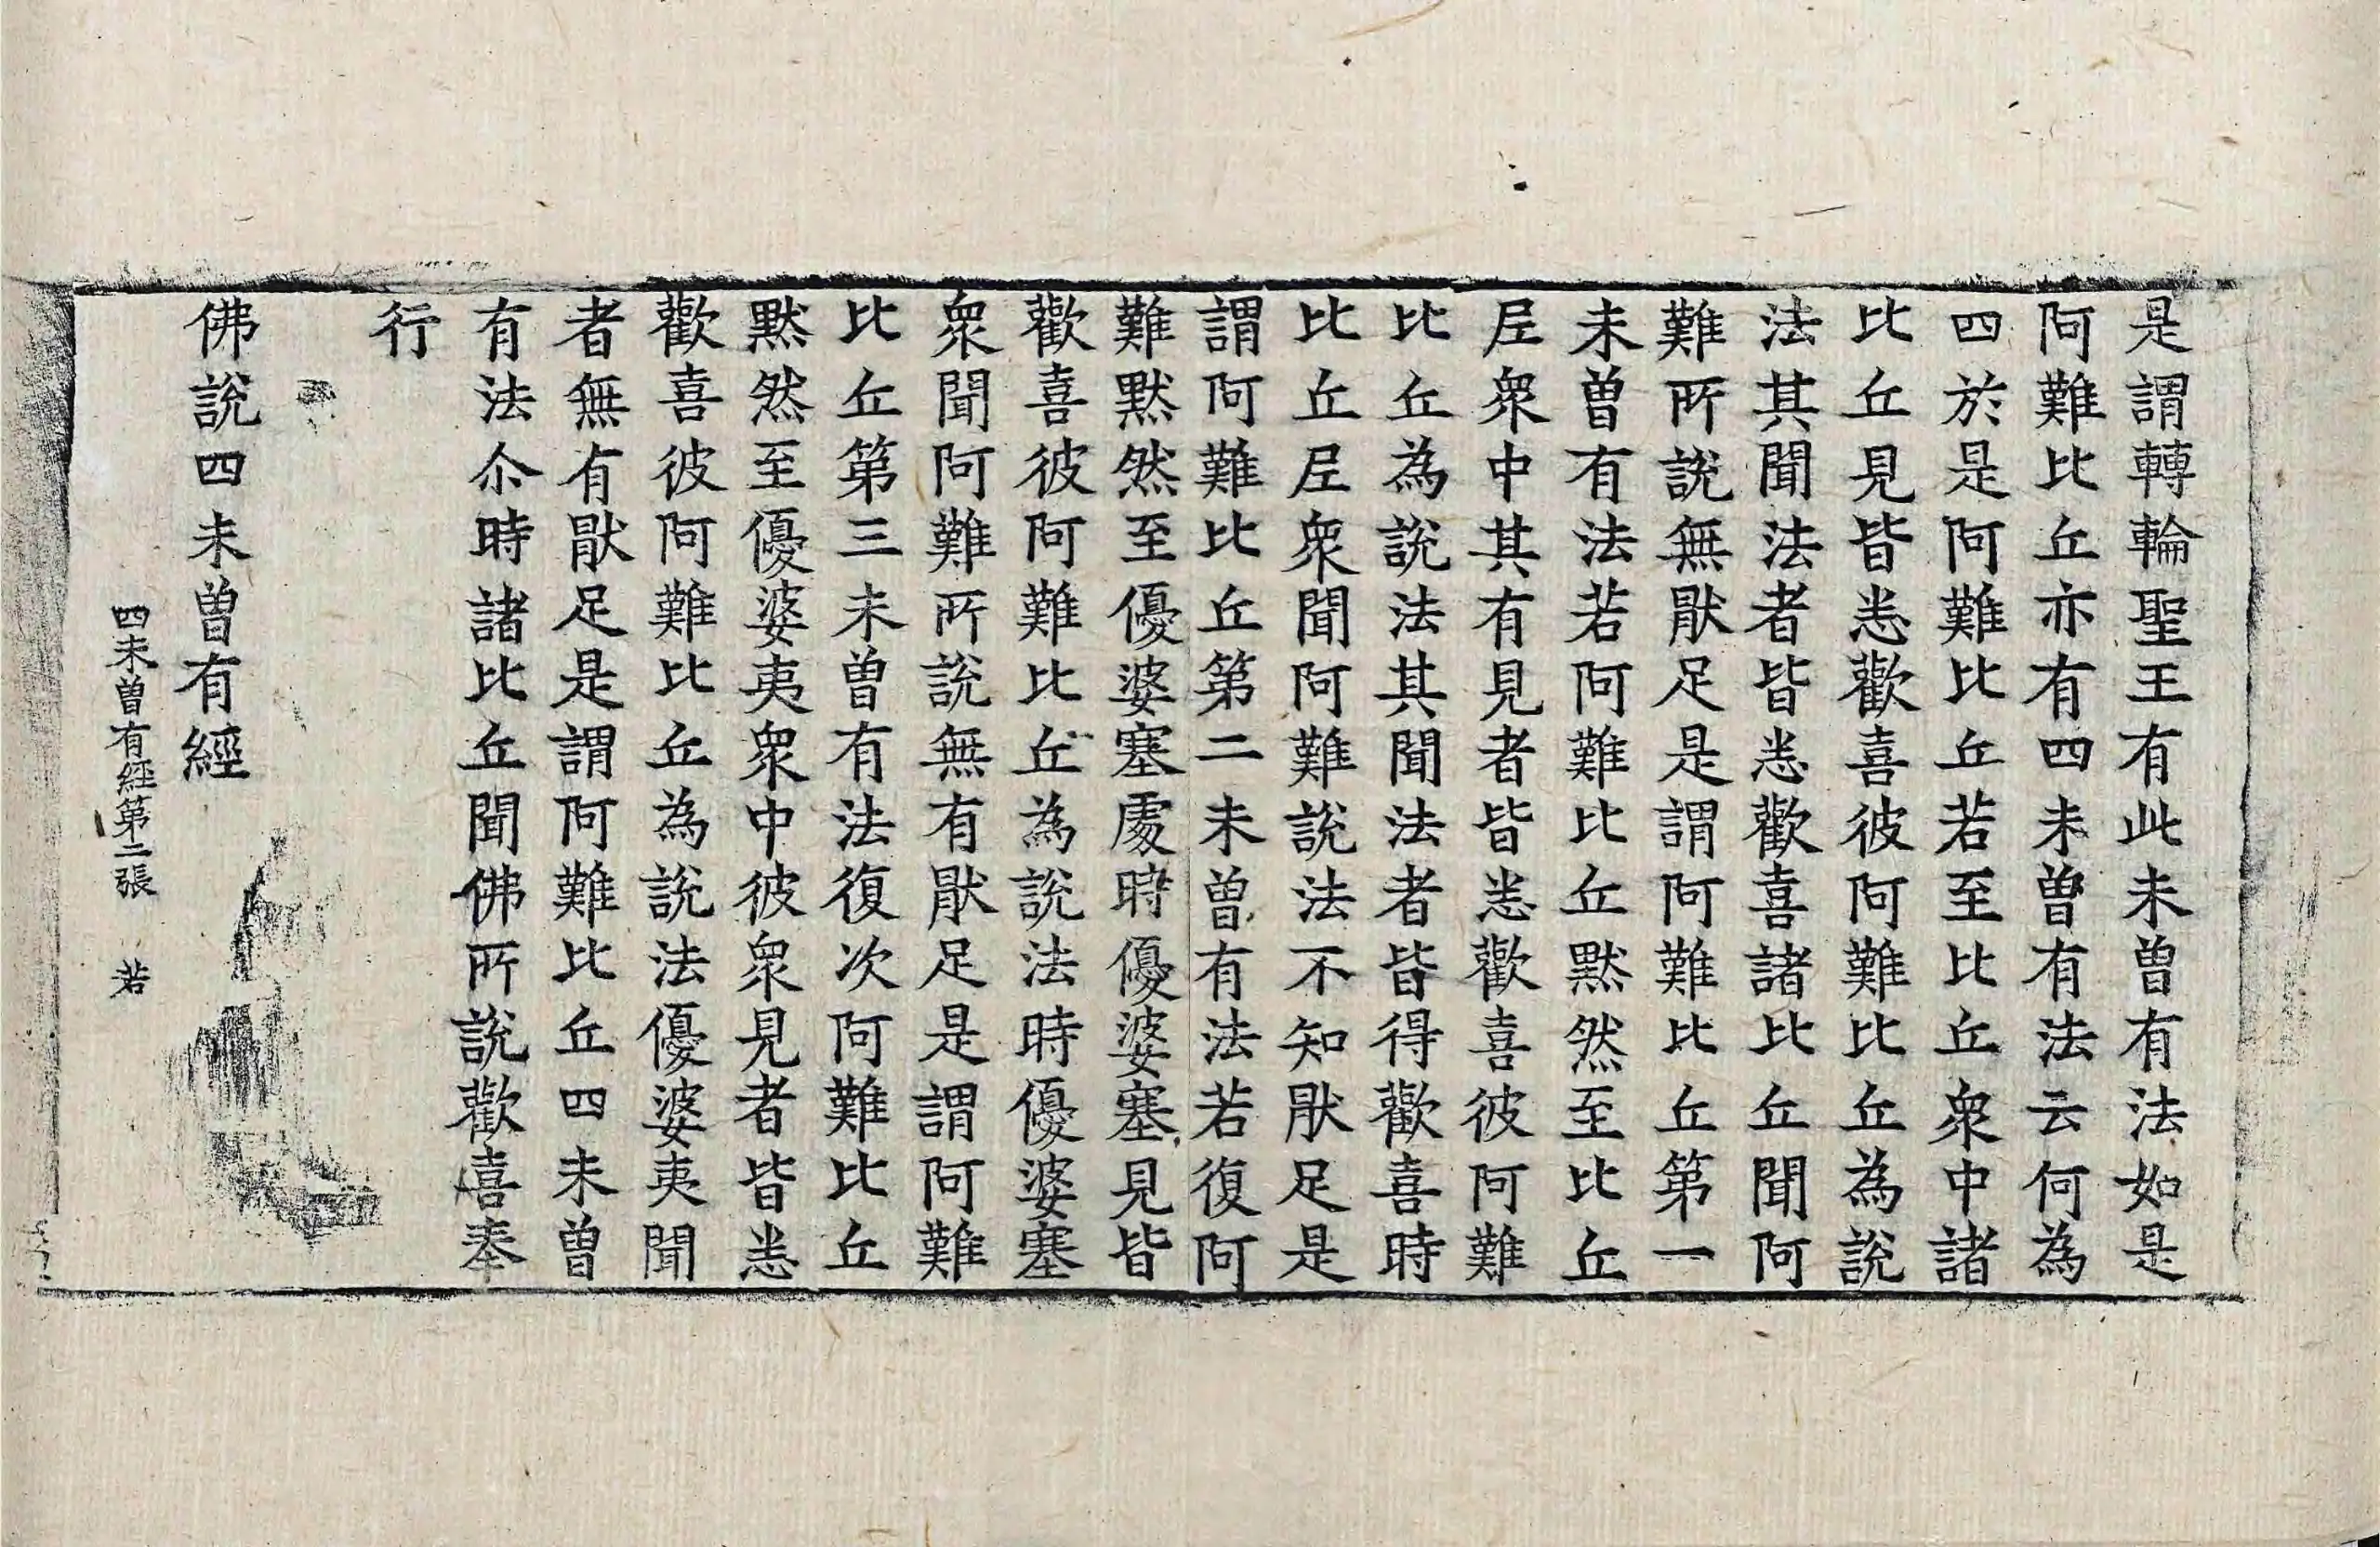 是謂轉輪聖王有此未曾有法如是
阿難比丘亦有四未曾有法云何為
四於是阿難比丘若至比丘衆中諸
比丘見皆悉歡喜彼阿難比丘為說
法其聞法者皆悉歡喜諸比丘聞阿
難所說無猒足是謂阿難比丘第一
未曾有法若阿難比丘黙然至比丘
𡰱衆中其有見者皆悉歡喜彼阿難
比丘為說法其聞法者皆得歡喜時
比丘𡰱衆聞阿難說法不知猒足是
謂阿難比丘第二未曾有法若復阿
難黙然至優婆塞處時優婆塞見皆
歡喜彼阿難比丘為說法時優婆塞
衆聞阿難所說無有猒足是謂阿難
比丘第三未曾有法復次阿難比丘
黙然至優婆夷衆中彼衆見者皆悉
歡喜彼阿難比丘為說法優婆夷聞
者無有猒足是謂阿難比丘四未曾
有法尒時諸比丘聞佛所說歡喜奉
行
佛說四未曾有經
四未曾有經第二張　若